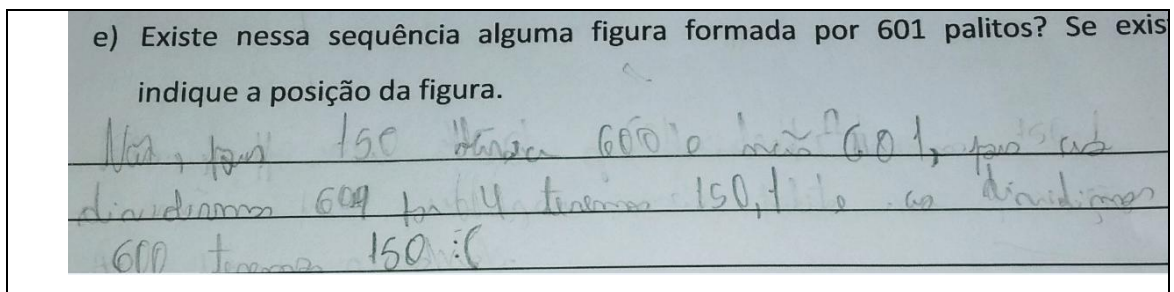 e) Existe nessa sequência alguma figura formada por 601 palitos? Se exis
indique a posição da figura.
Não, pois 150 teria 600 e não 601, pois ao
dividirmos 601 por 4 teremos 150,1 e ao dividirmos
600 teremos 150 :(